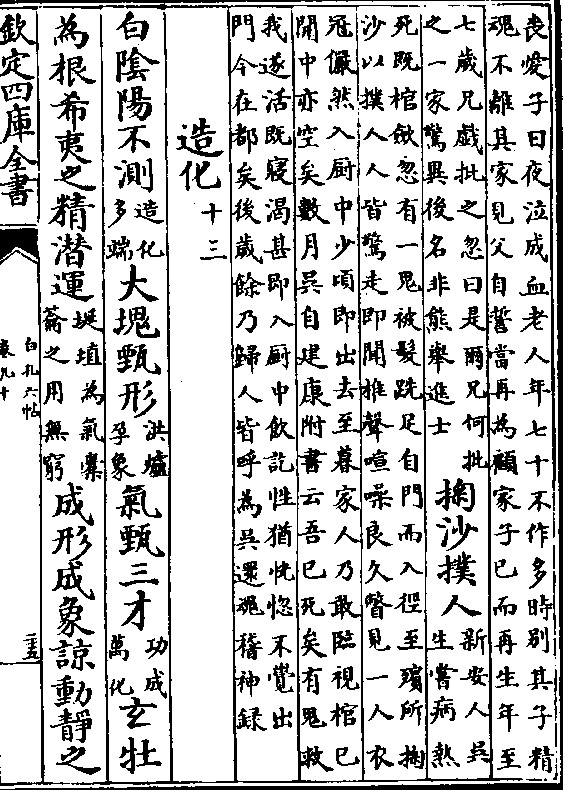 喪愛子日夜泣成血老人年七十不作多時别其子精
魂不離其家見父自誓當再為顧家子已而再生年至
七歲兄戲批之忽曰是爾兄何批
之一家驚異後名非熊舉進士
掬沙撲人
新安人吳
生嘗病熱
死既棺斂忽有一鬼被髮跣足自門而入徑至殯所掬
沙以撲人人皆驚走即聞推聲喧噪良久瞥見一人衣
冠儼然入厨中少頃即出去至暮家人乃敢臨視棺已
開中亦空矣數月吳自建康附書云吾已死矣有鬼救
我遂活既寢渴甚即入厨中飲訖性猶恍惚不覺出
門今在都矣後歲餘乃歸人皆呼為吳還魂稽神錄
造化十三
白陰陽不測造化多端大塊甄形洪爐孕象氣甄三才功成萬化玄牡
為根希夷之精潛運埏埴為氣橐籥之用無窮成形成象諒動静之
欽定四庫全書
白孔六帖
卷九十